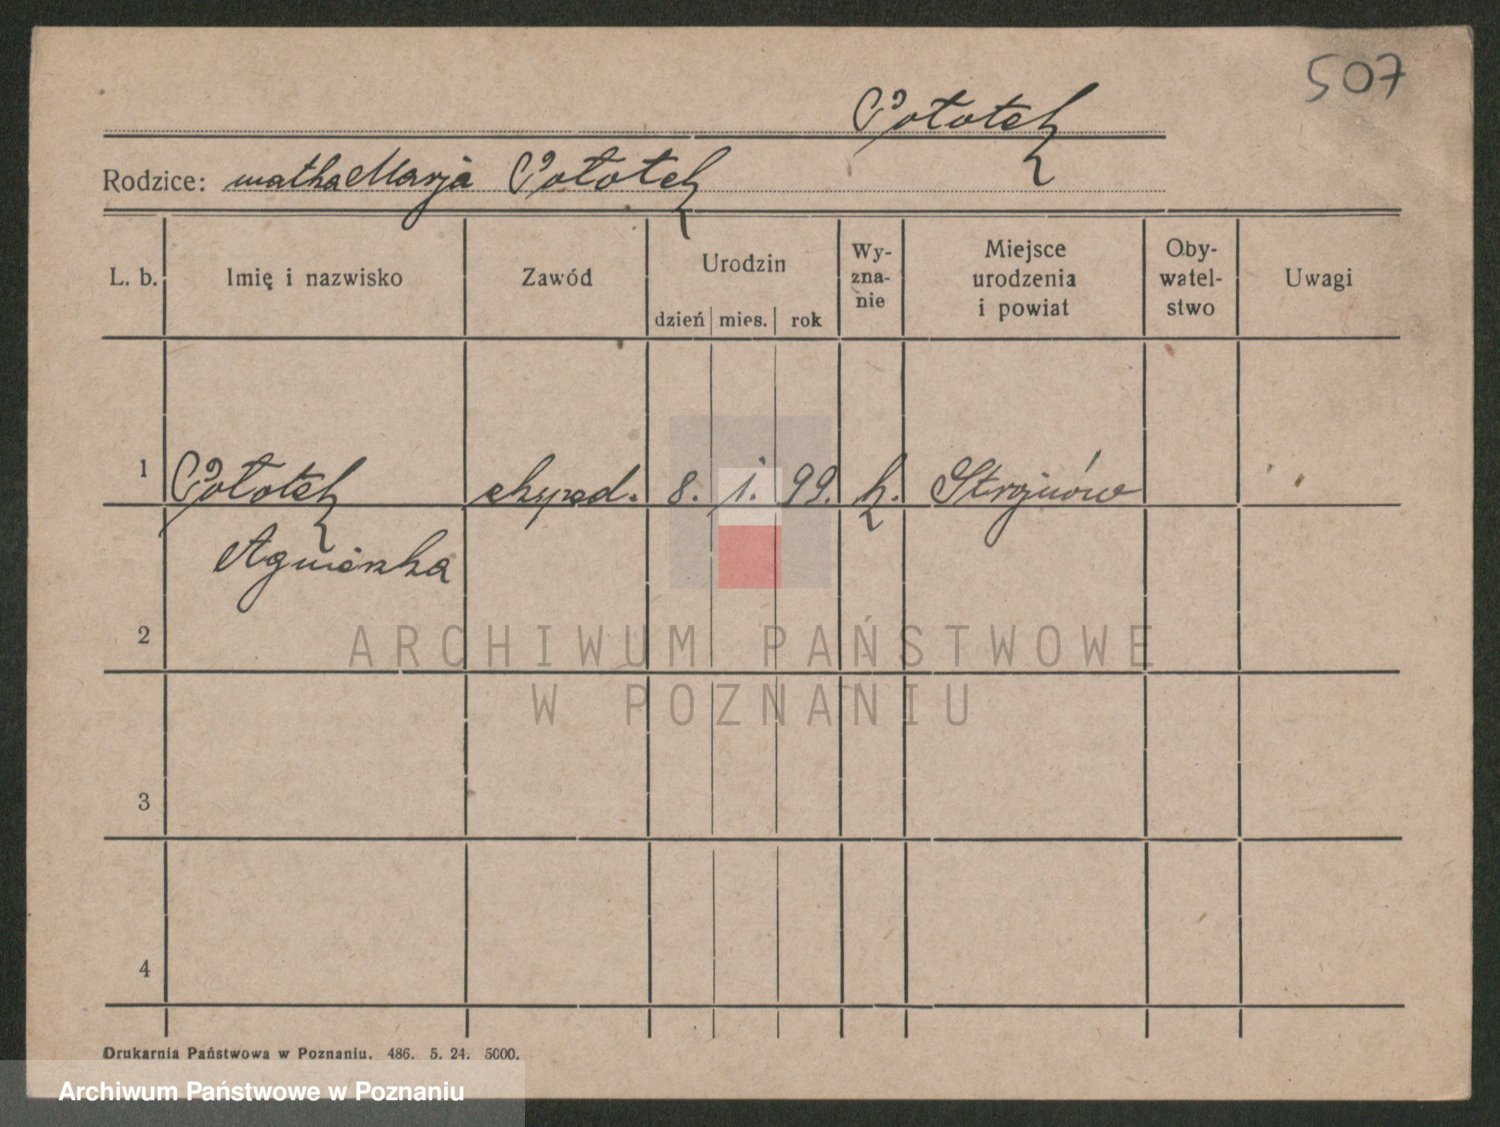 507
Połotek
Rodzice: matka Marja Połotek
L. b. Imię i nazwisko Zawód Urodzin dzień mies. rok Wy-zna-nie Miejsce urodzenia i powiat Oby-watel-stwo Uwagi
1 Połotek eksped. 8. 1. 99. k. Strojnów
Agnieszka
2
3
4
ARCHIWUM PAŃSTWOWE
W POZNANIU
Drukarnia Państwowa w Poznaniu. 486. 5. 24. 5000.
Archiwum Państwowe w Poznaniu